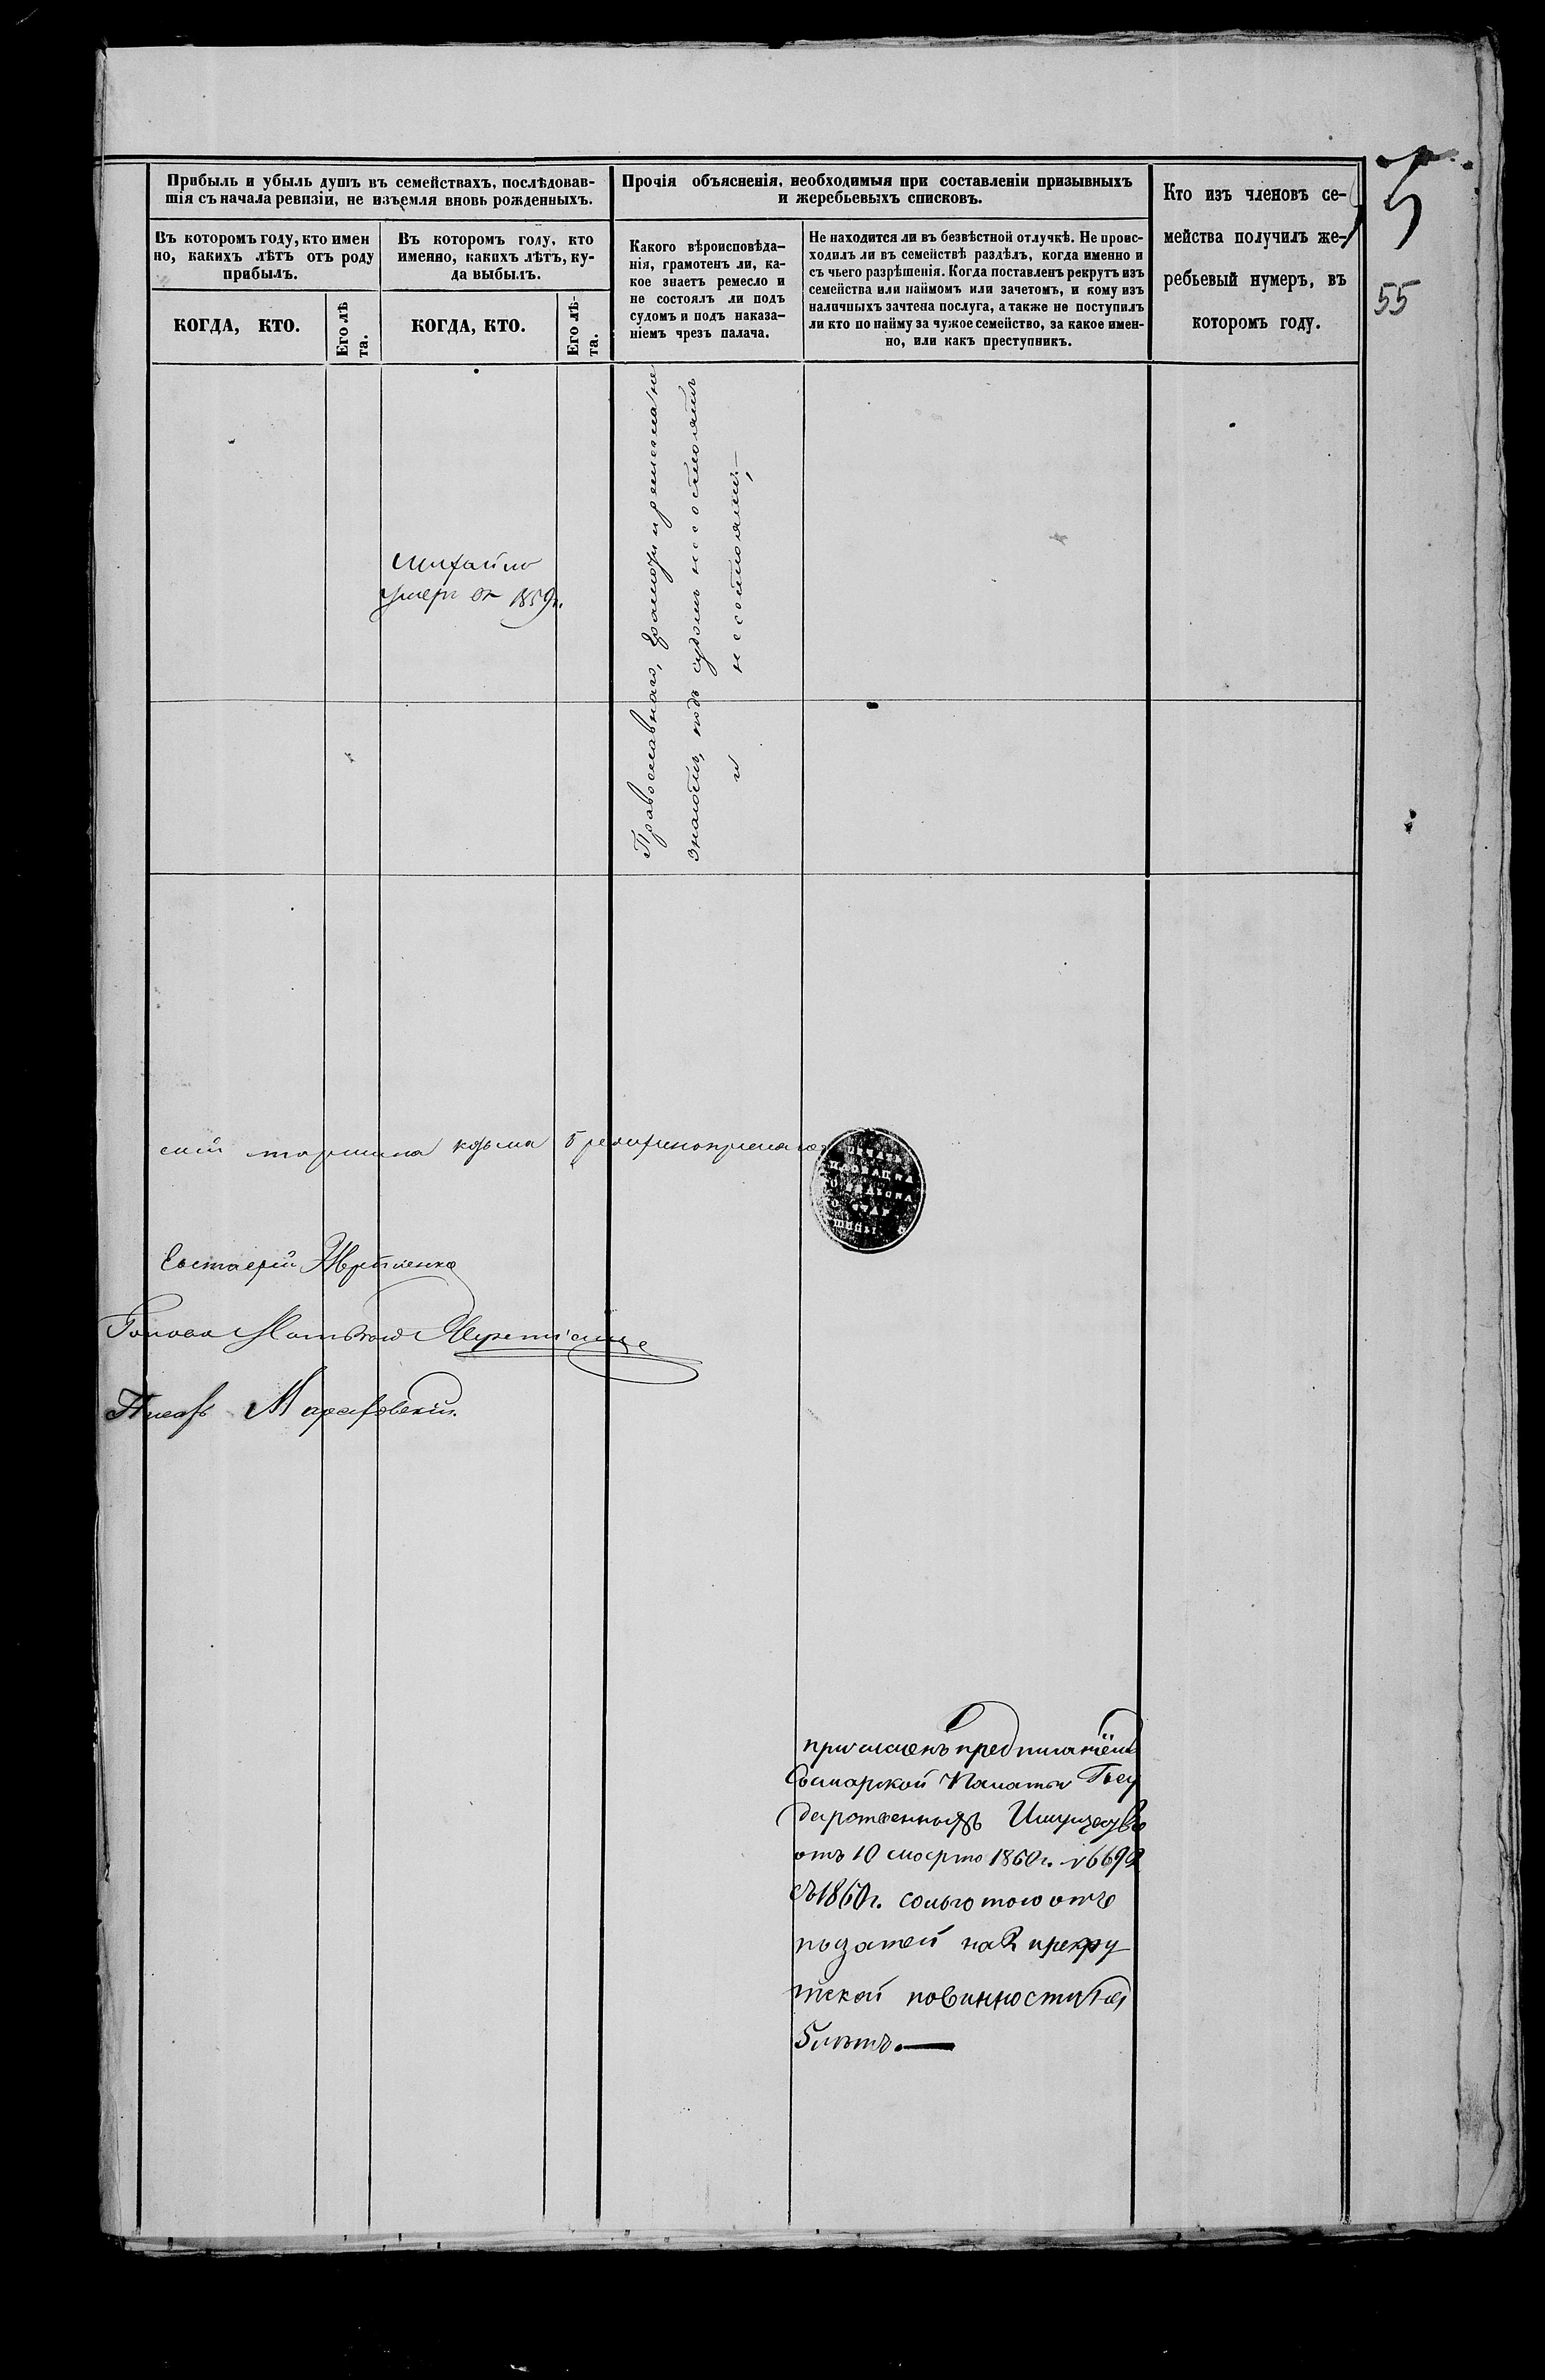 Прибыль и убыль душъ въ семействахъ, послѣдовав-
шія съ начала ревизіи, не изъемля вновь рожденныхъ.
Прочія объясненія, необходимыя при составленіи призывныхъ
и жеребьевыхъ списковъ.
Кто изъ членовъ се-
мейства получилъ же-
ребьевый нумеръ, въ
которомъ году.
5
55
Въ которомъ году, кто имен
но, какихъ лѣтъ отъ роду
прибылъ.
Въ которомъ году, кто
именно, какихъ лѣтъ, ку-
да выбылъ.
Какого вѣроисповѣда-
нія, грамотенъ ли, ка-
кое знаетъ ремесло и
не состоялъ ли подъ
судомъ и подъ наказа-
ніемъ чрезъ палача.
Не находится ли въ безвѣстной отлучкѣ. Не проис-
ходилъ ли въ семействѣ раздѣлъ, когда именно и
съ чьего разрѣшенія. Когда поставленъ рекрутъ изъ
семейства или наймомъ или зачетомъ, и кому изъ
наличныхъ зачтена послуга, а также не поступилъ
ли кто по найму за чужое семейство, за какое имен-
но, или какъ преступникъ.
КОГДА, КТО.
Его лѣ
та.
КОГДА, КТО.
Его лѣ-
та.
Михайло
умеръ въ 1859г.
Православнаго, грамоты и ремесла не
знаютъ, подъ судомъ несостоятъ
и несостояли;—
старшина козьма
Евстафій
Голова
Писарь
причисленъ предписаніемъ
Самарской Палаты Госу
дарственныхъ Имуществъ
отъ 10 марта 1860г. №6692
съ 1860г. сольготою отъ
податей на 2 и рекру
тской повинности на
5 лѣтъ.—